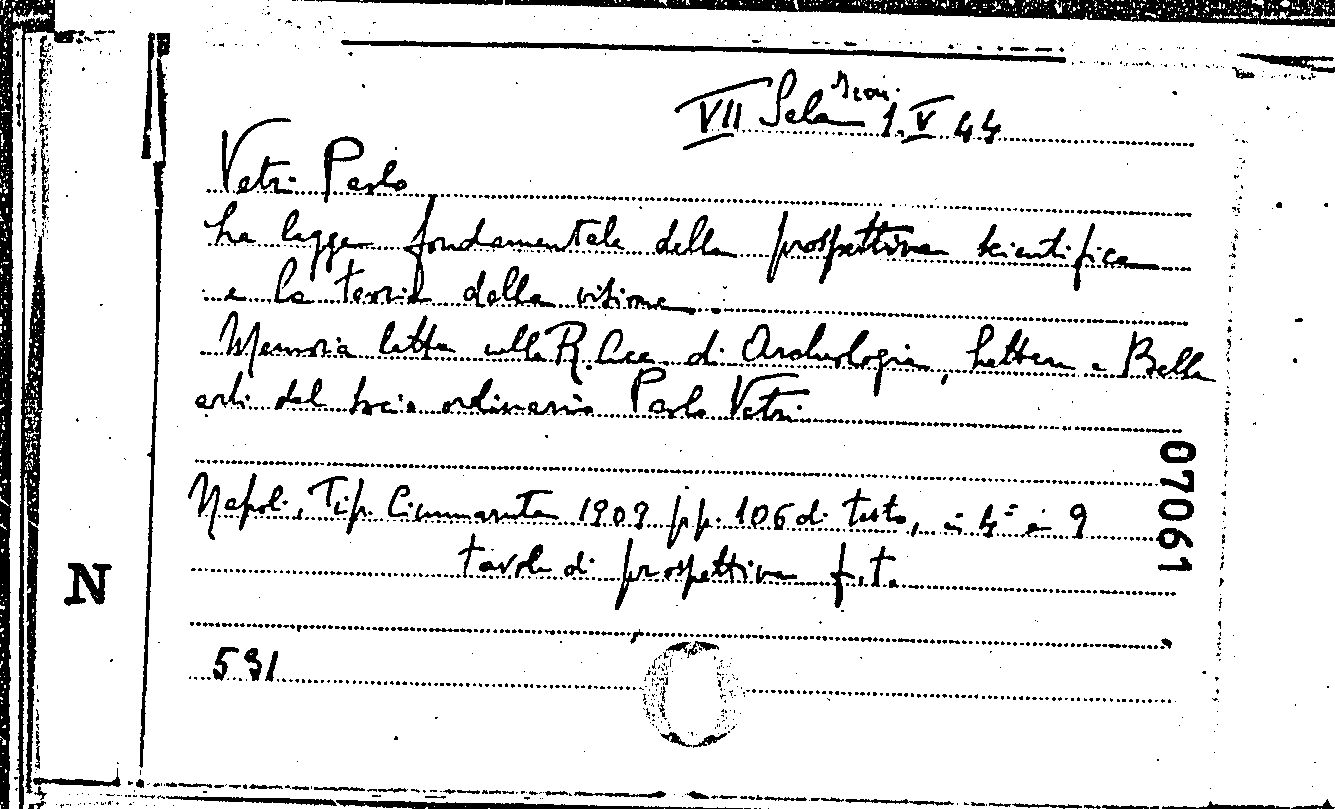 VII Sala 1.V 44
Vetri Paolo
La legge fondamentale della prospettiva scientifica
e la teoria della visione
Memoria letta alla R. Acc. di Archeologia, Lettere e Belle
arti dal socio ordinario Paolo Vetri
Napoli, Tip. Cimmaruta 1909 pp. 106 di testo, in 4° e 9
tavole di prospettiva f.t.
531
07061
N